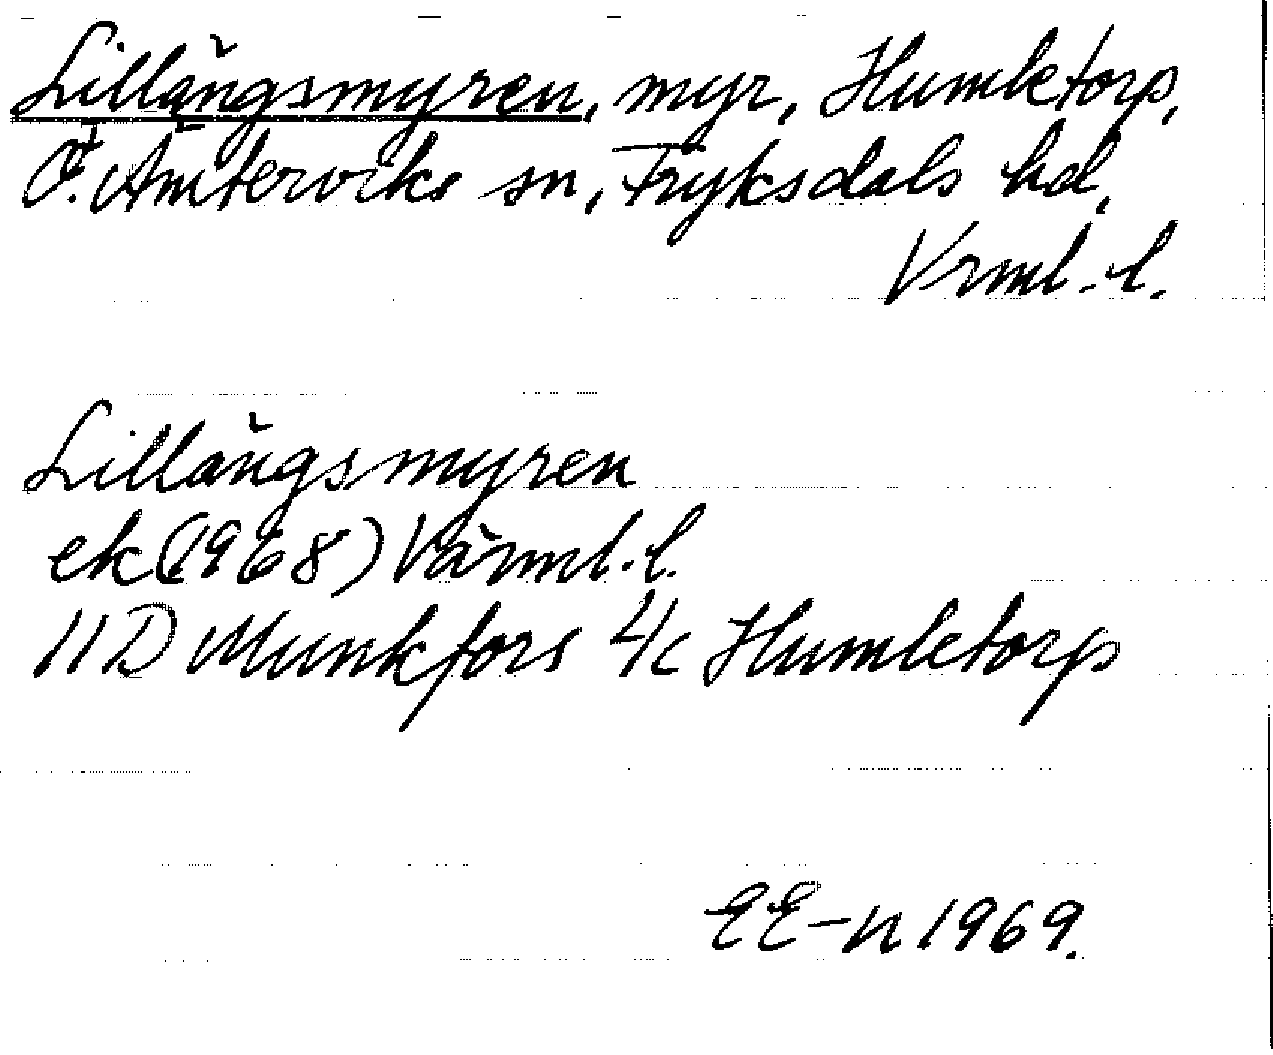 Lillängsmyren, myr, Humletorp,
Ö. Ämterviks sn, Fryksdals hd,
Vrml. l.
Lillängsmyren
ek (1968) Värml. l.
11D Munkfors 4c Humletorp
EE-n 1969.